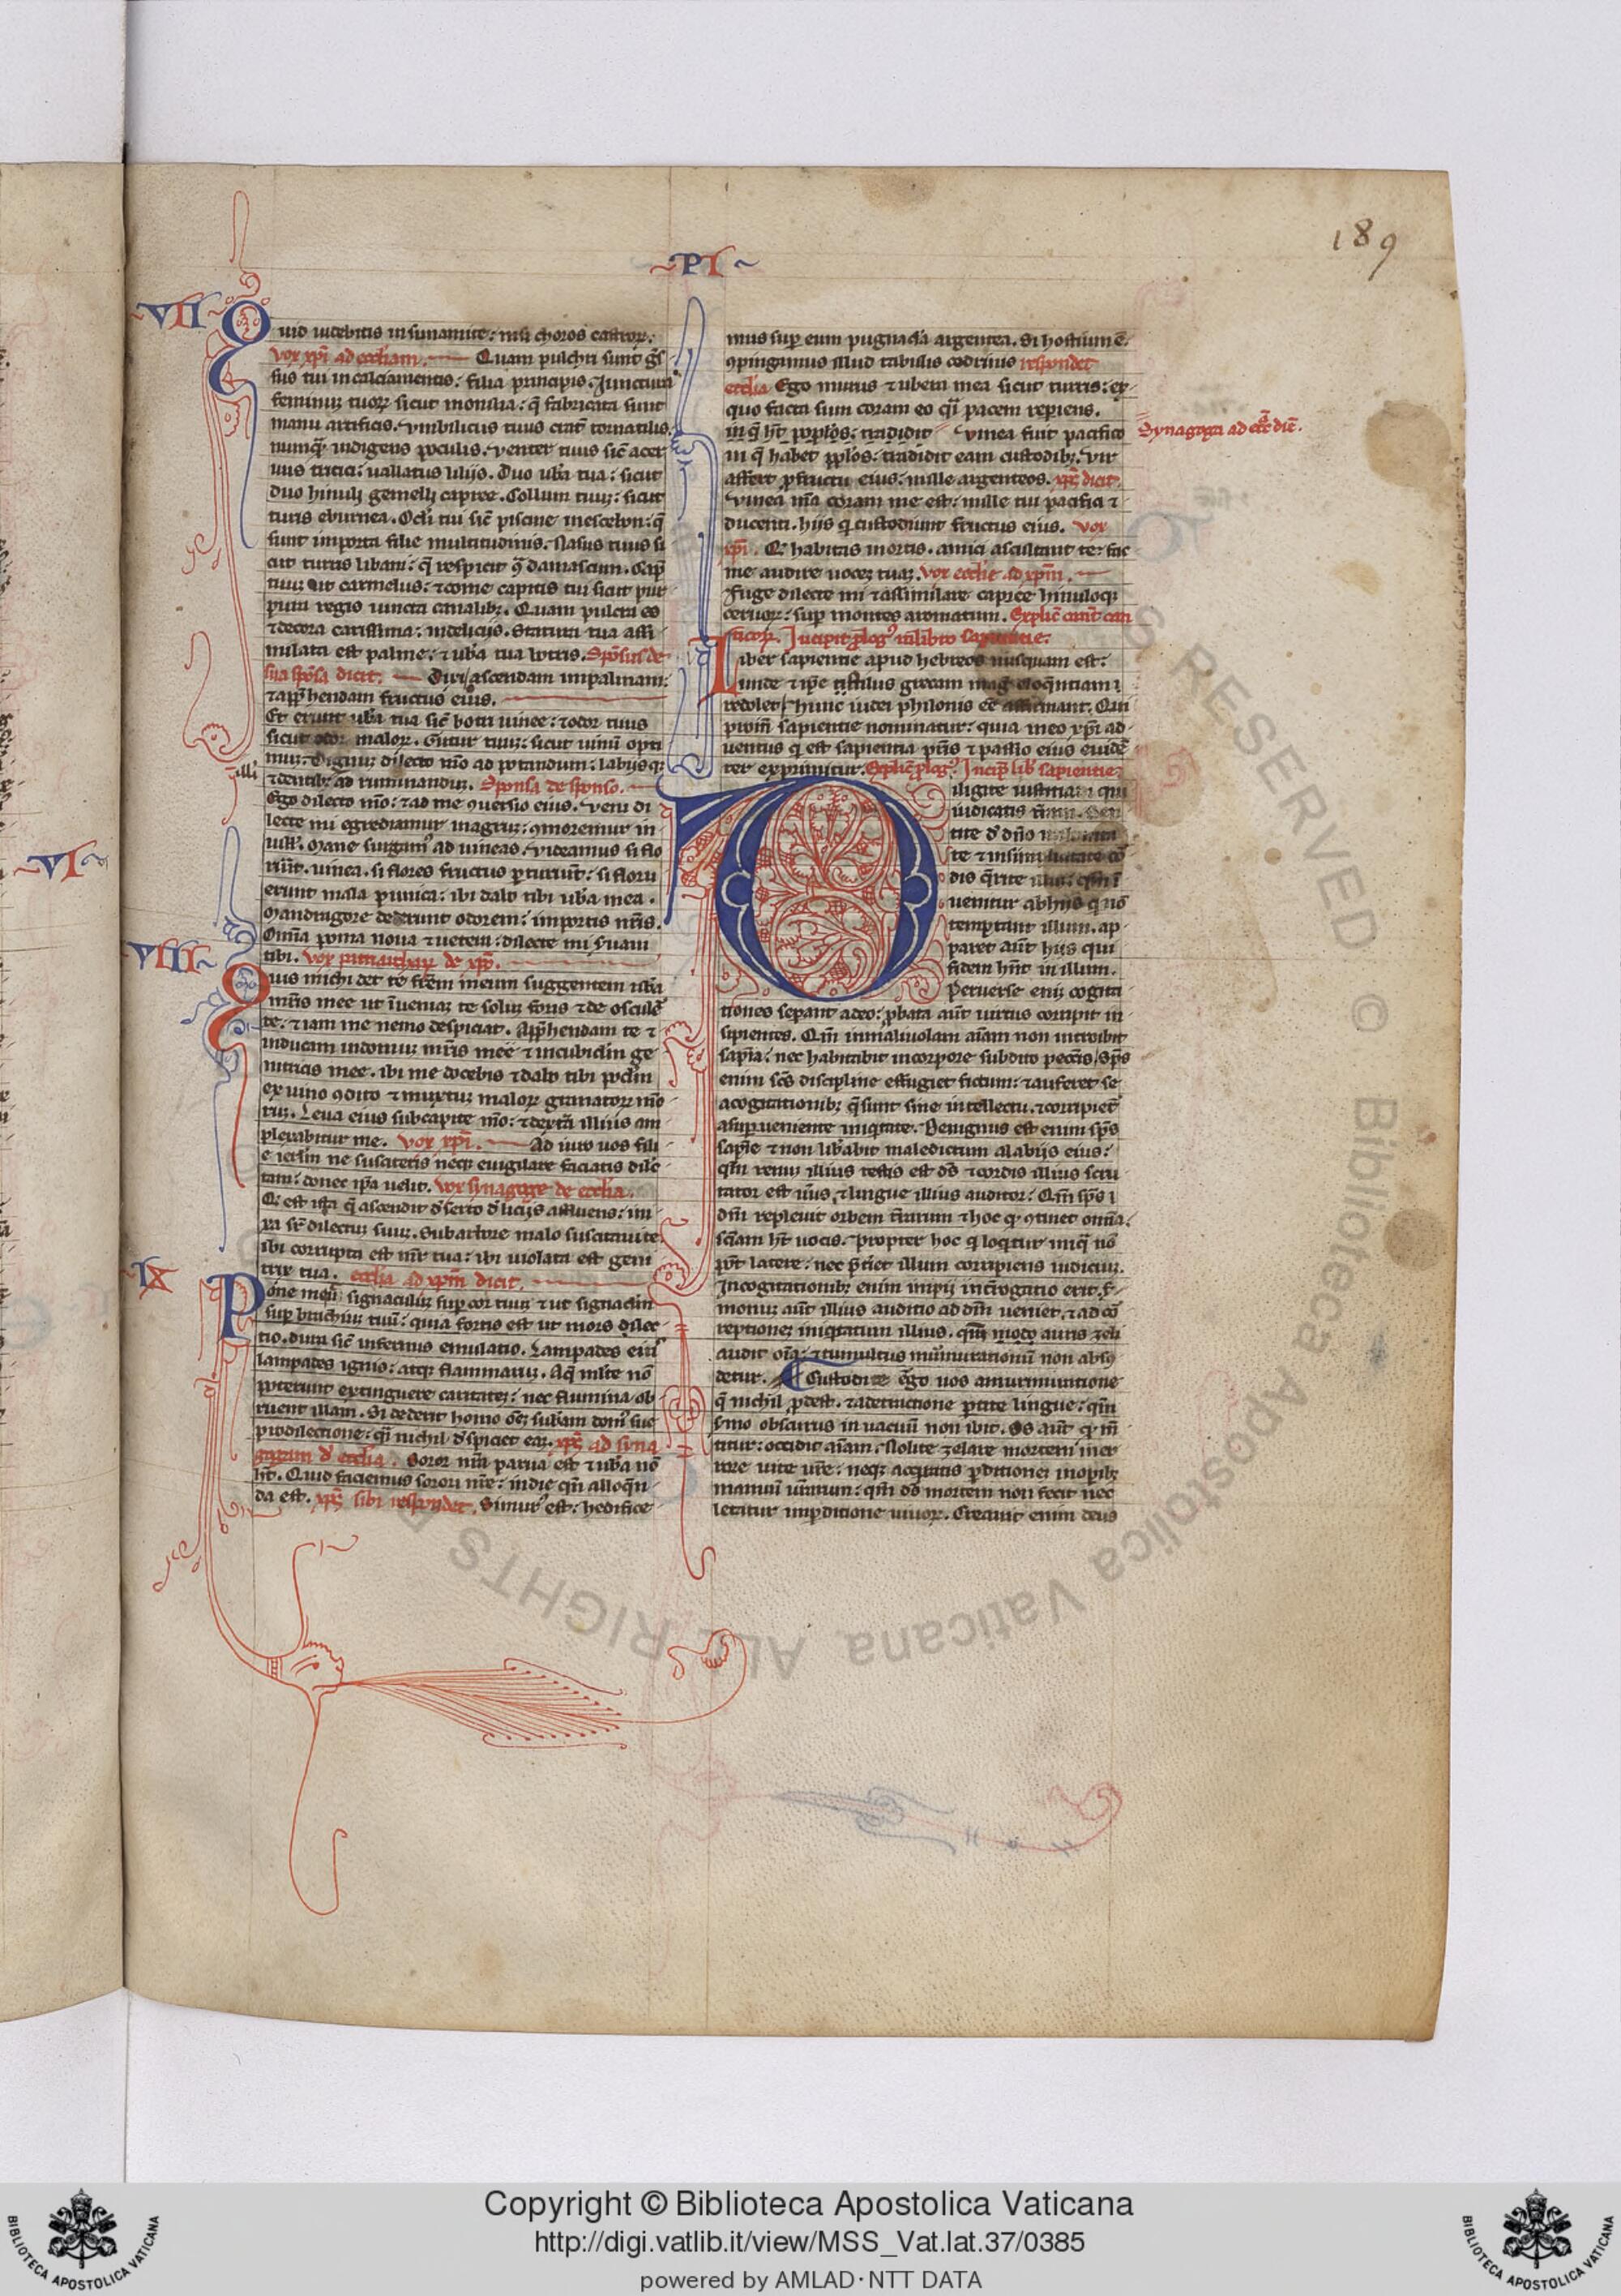 189
PI
VII
Quid uidebitis in sunamite: nisi choros castror̄:
vox xp̄i ad eccl̄iam. Quam pulchri sunt g̃s
sus tui in calciamentis: filia principis. Junctura
feminuȝ tuoꝝ sicut monilia: q̄ fabricata sunt
manu artificis. vmbilicus tuus crat̄ tornatilis.
nunqȝ indigens poculis. venter tuus sic̄ acer
uus tritici: uallatus lilijs. Duo ub̄a tua: sicut
duo hinuli gemelli capree. Collum tuuȝ: sicut
turis eburnea. Oc̄li tui sic̄ piscine in esebon: q̄
sunt in porta filie multitudinis. Nasus tuus si
cut turris libani: q̄ respicit 9̄ damascum. Cap̄
tuuȝ ut carmelus: ⁊ come capitis tui sicut pur
pura regis iuncta canalibȝ. Quam pulcra es
⁊ decora carissima: in delicijs. Statura tua assi
milata est palme: ⁊ ub̄a tua botris. Spōsus de
sua spōsa dicit: Dixi ascendam in palmam:
⁊ app̄hendam fructus eius.
Et erunt ub̄a tua sic̄ botri uinee: ⁊ odor tuus
sicut odor maloꝝ. Gutur tuuȝ: sicut uinū opti
muȝ. Dignuȝ dilecto m̄o ad potandum: labijsqȝ
illi
⁊ dentibȝ ad ruminanduȝ. Sponsa de sponso.
Ego dilecto m̄o: ⁊ ad me 9uersio eius. Veni di
lecte mi egrediamur in agruȝ: 9moremur in
uill̄. Mane surgam9 ad uineas. Videamus si flo
ruīt. uinea. si flores fructus ꝑturiūt: si floru
erunt mala punica: ibi dabo tibi ub̄a mea.
Mandragore dederunt odorem: in portis nr̄is.
Omīa poma noua ⁊ uetera: dilecte mi seruaui
tibi.
VI
VIII
Quis michi det te fr̄em meum suggentem ub̄a
mr̄is mee ut īueniaȝ te soluȝ foris ⁊ de osculē
te: ⁊ iam me nemo despiciat. App̄hendam te ⁊
inducam in domuȝ mr̄is mee ⁊ in cubic̄lm ge
nitricis mee. ibi me docebis ⁊ dabo tibi poc̄lm
ex uino 9dito ⁊ mustuȝ maloꝝ granatoꝝ meo
ruȝ. Leua eius sub capite m̄o: ⁊ dext̄a illius am
plexabitur me. vox xp̄i. Ad iuro uos fili
e ierl̄m ne suscitetis neqȝ euigilare faciatis dilc̄
tam: donec ip̄a uelit. vox synagoge de eccl̄ia.
Q̄ est ista q̄ ascendit d̄serto d̄licijs affluens: ini
xa sr̄ dilectuȝ suuȝ. Sub arbore malo suscitaui te
ibi corrupta est mr̄ tua: ibi uiolata est geni
trix tua. eccl̄ia ad xp̄m dicit.
IX
Pone me ut signaculuȝ sup̄ cor tuuȝ ⁊ ut signac̄lm
sup̄ brachiuȝ tuū: quia fortis est ut mors dilec
tio. dura sic̄ infernus emulatio. Lampades ei9
lampades ignis: atqȝ flammaruȝ. Aq̄ ml̄te nō
poterunt extinguere caritateȝ: nec flumina ob
ruent illam. Si dederit homo om̄eȝ sub̄am dom9 sue
pro dilectione: q̄i nichil d̄spiciet eaȝ. xp̄s ad syna
gogam d̄ eccl̄ia. Soror nr̄a parua est ⁊ ub̄a nō
ht̄. Quid faciemus sorori nr̄e: in die qn̄ alloq̄n
da est. xp̄s sibi respondet. Si mur9 est: hedifice
mus sup̄ eum pugnac̄la argentea. Si hostium ē.
9pingamus illud tabulis cedrinis respondet
eccl̄ia Ego murus ⁊ ubera mea sicut turris: ex
quo facta sum coram eo q̄i pacem reperiens.
in q̄ ht̄ pop̄los: tradidit vinea fuit pacifico
Synagoga ad eccl̄ē dic̄.
in q̄ habet pp̄los: tradidit eam custodibȝ. vir
affert ꝓ fructu eius: mille argenteos. xp̄s dicit.
Vinea m̄a coram me est: mille tui pacifici ⁊
ducenti. hijs q̄ custodiunt fructus eius. vox
xp̄i. Q̄ habitas in ortis. amici ascultant te: fac
me audire uoceȝ tuaȝ. vox eccl̄ie ad xp̄m.
Fuge dilecte mi ⁊ assimilare capree hinuloqȝ
ceruoꝝ: sup̄ montes aromatum. Explic̄ cant̄ can
ticoꝝ. Incipit ꝓlog9 in libro sapientie:
Liber sapientie apud hebreos nusquam est:
unde ⁊ ip̄e stilus grecam mag̃ eloq̄ntiam
redolet hunc iudei philonis eē affirmant. Qui
proin̄ sapientie nominatur: quia in eo xp̄i ad
uentus q̄ est sapientia pr̄is ⁊ passio eius euidē
ter exprimitur. Explic̄ ꝓlog9. Incip̄ lib̄ sapientie:
Diligite iustitiam qui
iudicatis t̄ram. Sen
tite d̄ dn̄o in bonita
te ⁊ in simplicitate cor
dis q̄rite illuȝ: qm̄ ī
uenitur ab hijs q̄ nō
temptant illum. ap
paret aūt hijs qui
fidem hn̄t in illum.
Peruerse eniȝ cogita
tiones sepant a deo: ꝓbata aūt uirtus corripit in
sipientes. Qm̄ in maliuolam aīam non introibit
sap̄ia: nec habitabit in corpore subdito pecc̄is. Sp̄s
enim sc̄s discipline effugiet fictum: ⁊ auferet se
a cogitationibȝ q̄ sunt sine intellectu. ⁊ corripiet̄
a sup̄ueniente iniq̄tate. Benignus est enim sp̄s
sap̄ie ⁊ non lib̄abit maledictum a labijs eius:
qm̄ renuȝ illius testis est ds̄ ⁊ cordis illius scru
tator est uīus. ⁊ lingue illius auditor: Qm̄ sp̄s
dn̄i repleuit orbem t̄rarum ⁊ hoc q̄ 9tinet omīa:
sc̄iam ht̄ uocis. Propter hoc q̄ loq̄tur iniq̄ nō
pōt latere: nec p̄t̄iet illum corripiens iudiciuȝ.
In cogitationibȝ enim impij int̄rogatio erit. s̄
monuȝ aūt illius auditio ad dm̄ ueniet. ⁊ ad cor
reptioneȝ iniq̄tatum illius. qm̄ moto auris zeli
audit oīa: ⁊ tumultus murmurationū non absc̄
detur. Custodite ḡo uos a murmuratione
q̄ nichil ꝓdest. ⁊ a detractione ꝑcite lingue: qm̄
s̄mo obscurus in uacuū non ibit. Os aūt q̄ m̄
titur: occidit aīam. Nolite zelare mortem in er
rore uite ur̄e: neqȝ acquiratis ꝑditioneȝ in opibȝ
manuū ur̄arum: qm̄ ds̄ mortem non fecit nec
letatur in ꝑditione uiuoꝝ. Creauit enim deus
Copyright © Biblioteca Apostolica Vaticana
http://digi.vatlib.it/view/MSS_Vat.lat.37/0385
powered by AMLAD·NTT DATA
BIBLIOTECA APOSTOLICA VATICANA
BIBLIOTECA APOSTOLICA VATICANA
ALL RIGHTS RESERVED © Biblioteca Apostolica Vaticana